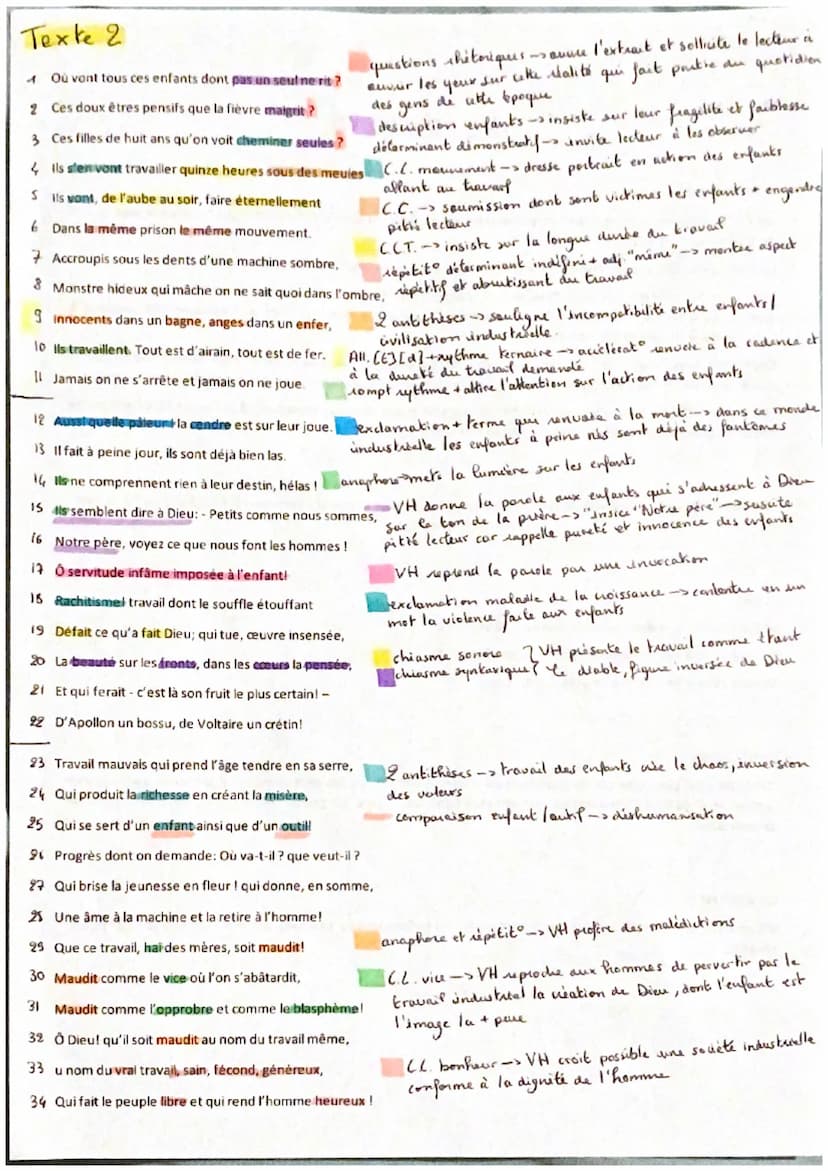 Texte 2
questions rhétoriques -> ouvre l'extrait et sollicite le lecteur à
1 Où vont tous ces enfants dont pas un seul ne rit ?
ouvrir les yeux sur cette réalité qui fait partie du quotidien
des gens de cette époque
2 Ces doux êtres pensifs que la fièvre maigrit ?
description enfants -> insiste sur leur fragilité et faiblesse
3 Ces filles de huit ans qu'on voit cheminer seules ?
déterminant démonstratif -> invite lecteur à les observer
4 Ils s'en vont travailler quinze heures sous des meules
C.L. mouvement -> dresse portrait en action des enfants
allant au travail
5 Ils vont, de l'aube au soir, faire éternellement
C.C. -> soumission dont sont victimes les enfants + engendre
pitié lecteur
6 Dans la même prison le même mouvement.
CCT. -> insiste sur la longue durée du travail
7 Accroupis sous les dents d'une machine sombre,
répétit° déterminant indéfini + adj "même" -> montre aspect
répétitif et abrutissant du travail
8 Monstre hideux qui mâche on ne sait quoi dans l'ombre,
9 Innocents dans un bagne, anges dans un enfer,
2 antithèses -> souligne l'incompatibilité entre enfants/
civilisation industrielle
10 Ils travaillent. Tout est d'airain, tout est de fer.
All. [t] [d] + rythme ternaire -> accélérat° renvoie à la cadence et
à la dureté du travail demandé
11 Jamais on ne s'arrête et jamais on ne joue.
rompt rythme + attire l'attention sur l'action des enfants
12 Aussi quelle pâleur ! la cendre est sur leur joue.
exclamation + terme qui renvoie à la mort --> dans ce monde
industrielle les enfants à peine nés sont déjà des fantômes
13 Il fait à peine jour, ils sont déjà bien las.
14 Ils ne comprennent rien à leur destin, hélas !
anaphore -> mets la lumière sur les enfants
15 Ils semblent dire à Dieu: - Petits comme nous sommes,
VH donne la parole aux enfants qui s'adressent à Dieu
sur le ton de la prière -> "Notre père" -> suscite
16 Notre père, voyez ce que nous font les hommes !
pitié lecteur car rappelle pureté et innocence des enfants
17 Ô servitude infâme imposée à l'enfant!
VH reprend la parole par une invocation
18 Rachitisme! travail dont le souffle étouffant
exclamation maladie de la croissance -> contentre en un
mot la violence faite aux enfants
19 Défait ce qu'a fait Dieu; qui tue, œuvre insensée,
chiasme sonore } VH présente le travail comme étant
20 La beauté sur les fronts, dans les cœurs la pensée,
chiasme syntaxique } le diable, figure inversée de Dieu
21 Et qui ferait - c'est là son fruit le plus certain! –
22 D'Apollon un bossu, de Voltaire un crétin!
23 Travail mauvais qui prend l'âge tendre en sa serre,
2 antithèses -> travail des enfants crée le chaos, inversion
des valeurs
24 Qui produit la richesse en créant la misère,
25 Qui se sert d'un enfant ainsi que d'un outil!
comparaison enfant / outil -> déshumanisation
26 Progrès dont on demande: Où va-t-il ? que veut-il ?
27 Qui brise la jeunesse en fleur ! qui donne, en somme,
28 Une âme à la machine et la retire à l'homme!
29 Que ce travail, haï des mères, soit maudit!
anaphore et répétit° -> VH profère des malédictions
30 Maudit comme le vice où l'on s'abâtardit,
C.L. vice -> VH reproche aux hommes de pervertir par le
31 Maudit comme l'opprobre et comme le blasphème!
travail industriel la création de Dieu, dont l'enfant est
l'image la + pure
32 Ô Dieu! qu'il soit maudit au nom du travail même,
33 u nom du vrai travail, sain, fécond, généreux,
CL. bonheur -> VH croit possible une société industrielle
conforme à la dignité de l'homme
34 Qui fait le peuple libre et qui rend l'homme heureux !